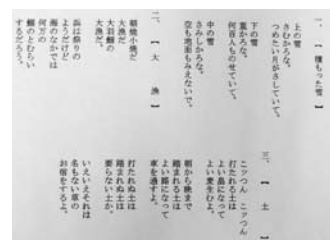 一、【 積もった雪 】
上の雪
さむかろな。
つめたい月がさしていて。
下の雪
重かろな。
何百人ものせていて。
中の雪
さみしかろな。
空も地面もみえないで。
二、【 大 漁 】
朝焼小焼だ
大漁だ
大羽鰮の
大漁だ。
浜は祭りの
ようだけど
海のなかでは
何万の
鰮のとむらい
するだろう。
三、【 土 】
こッつん こッつん
打たれる土は
よい畠になって
よい麦生むよ。
朝から晩まで
踏まれる土は
よい路になって
車を通すよ。
打たれぬ土は
踏まれぬ土は
要らない土か。
いえいえそれは
名もない草の
お宿をするよ。